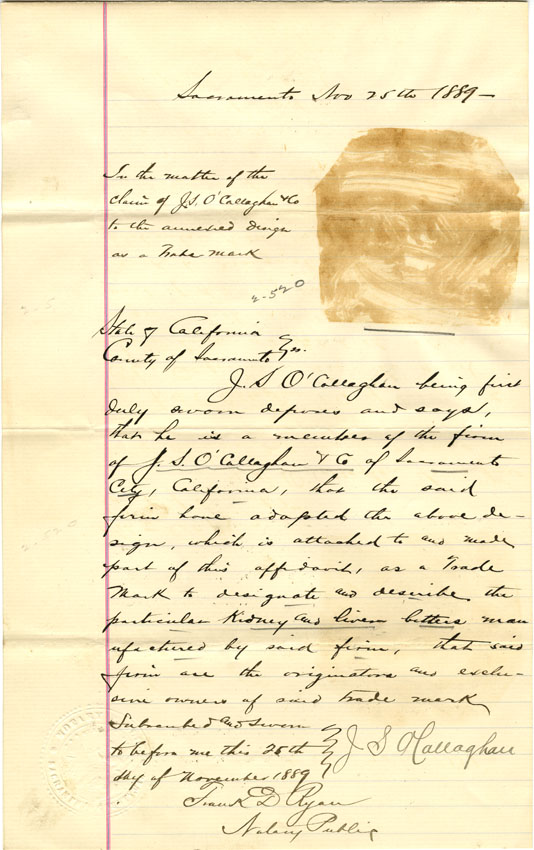 Sacramento Nov 25th 1889-
In the matter of the
claim of J.S. O'Callaghan & Co
to the annexed design
as a Trade Mark
2-520
State of California
County of Sacramento } ss.
J. S O'Callaghan being first
duly sworn deposes and says,
that he is a member of the firm
of J. S. O'Callaghan & Co of Sacramento
City, California, that the said
firm have adopted the above de-
sign, which is attached to and made
part of this affidavit, as a Trade
Mark to designate and describe the
particular Kidney and liver bitters man
ufactured by said firm, that said
firm are the originators and exclu-
sive owners of said trade mark
Subscribed and sworn
to before me this 25th
day of November 1889
J S O'Callaghan
Frank D Ryan
Notary Public
2-520